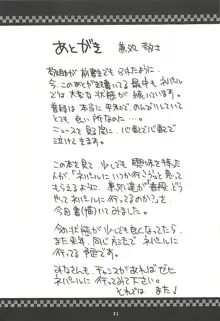 あとがき
今このあとがきを書いてる最中もネパール
では大変な状態が続いています。
普段は本当に平和で、のんびりしていて
とても良い所なのに…。
ニュースを見る度に心配で心配で
泣けてきます。
この本を見て、少しでも興味を持った
人が「ネパールにいつか行こう」と思って
もらえるように、
やってネパールに行ってるのかっを
今回書(描)いてみました。
今の状態が少しでも良くなったら
また来年、同じ方法でネパールに
行ってる予定です。
みなさんも、チャンスがあればゼヒ
ネパールに行ってみて下さい。
ではまた♪
31